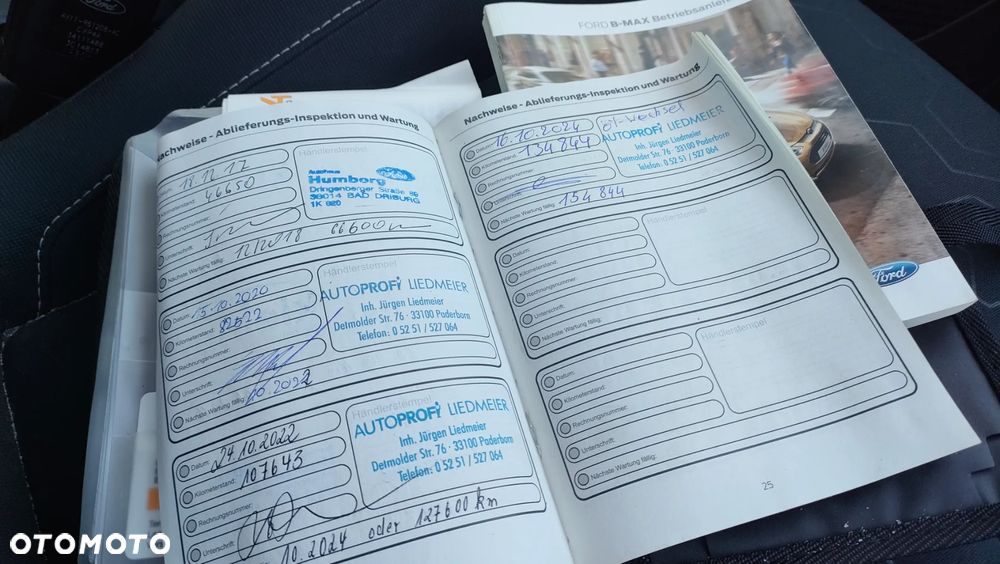 Ford
FORD B-MAX Betriebsanlei
Nachweise - Ablieferungs-Inspektion und Wartung
18.12.17
Kilometerstand: 46650
Rechnungsnummer:
Unterschrift:
Nächste Wartung fällig: 12/2018 66600
Händlerstempel
Autohaus
Humborg
Dringenberger Straße 86
33014 BAD DRIBURG
1K 820
Datum: 15.10.2020
Kilometerstand: 82522
Rechnungsnummer:
Unterschrift:
Nächste Wartung fällig: 10.2022
Händlerstempel
AUTOPROFI LIEDMEIER
Inh. Jürgen Liedmeier
Detmolder Str. 76 · 33100 Paderborn
Telefon: 0 52 51 / 527 064
Datum: 24.10.2022
Kilometerstand: 107643
Rechnungsnummer:
Unterschrift:
10.2024 oder 127600 km
Händlerstempel
AUTOPROFI LIEDMEIER
Inh. Jürgen Liedmeier
Detmolder Str. 76 · 33100 Paderborn
Telefon: 0 52 51 / 527 064
Nachweise - Ablieferungs-Inspektion und Wartung
Datum: 16.10.2024
Kilometerstand: 134844
Rechnungsnummer:
Unterschrift:
Nächste Wartung fällig: 154 844
Öl-Wechsel
AUTOPROFI LIEDMEIER
Inh. Jürgen Liedmeier
Detmolder Str. 76 · 33100 Paderborn
Telefon: 0 52 51 / 527 064
Datum:
Kilometerstand:
Rechnungsnummer:
Unterschrift:
Nächste Wartung fällig:
Händlerstempel
Datum:
Kilometerstand:
Rechnungsnummer:
Unterschrift:
Nächste Wartung fällig:
Händlerstempel
25
Ford
OTOMOTO